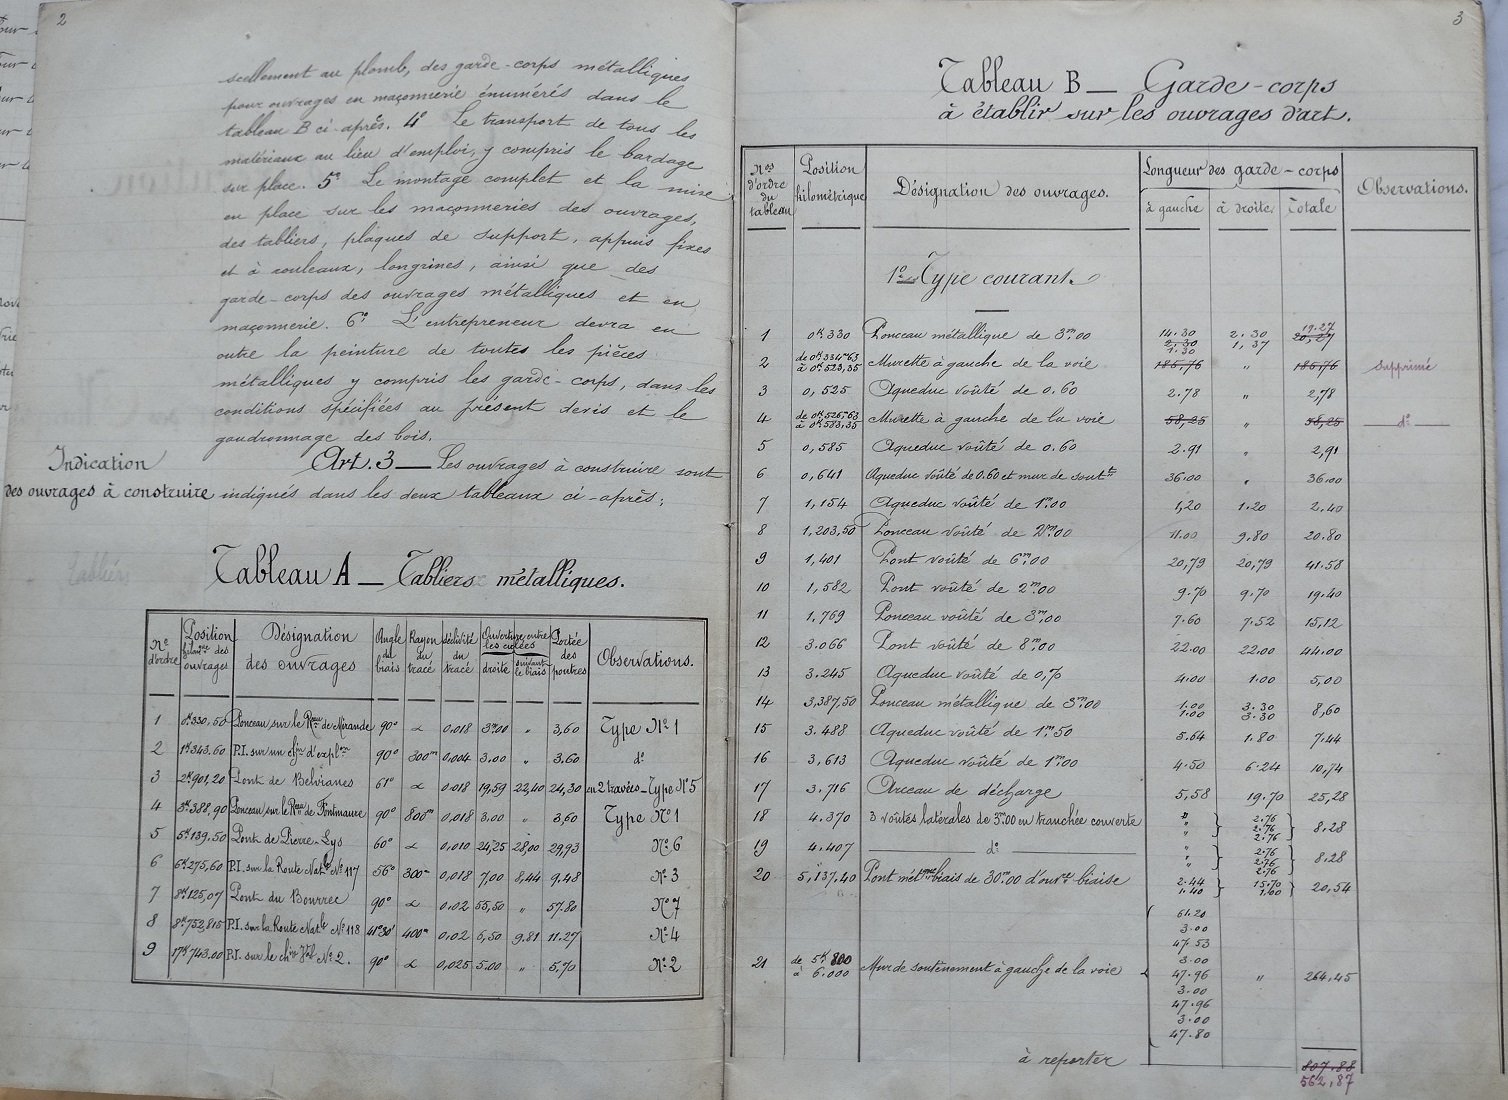 2
scellement au plomb, des garde-corps métalliques
pour ouvrages en maçonnerie énumérés dans le
tableau B ci-après. 4° Le transport de tous les
matériaux au lieu d'emploi, y compris le bardage
sur place. 5° Le montage complet et la mise
en place sur les maçonneries des ouvrages,
des tabliers, plaques de support, appuis fixes
et à rouleaux, longrines, ainsi que des
garde-corps des ouvrages métalliques et en
maçonnerie. 6° L'entrepreneur devra en
outre la peinture de toutes les pièces
métalliques y compris les garde-corps, dans les
conditions spécifiées au présent devis et le
goudronnage des bois.
Indication
des ouvrages à construire
Art. 3 — Les ouvrages à construire sont
indiqués dans les deux tableaux ci-après:
Tableau A — Tabliers métalliques.
Nos d'ordre Position kilomque des ouvrages Désignation des ouvrages Angle du biais Rayon du tracé déclivité du tracé Ouverture entre les culées droite suivant le biais Portée des poutres Observations.
1 0k330,50 Ponceau sur le Reau de Mirande 90° α 0,018 3m00 " 3,60 Type N°1
2 1k343.60 P.I. sur un chin d'explon 90° 300m 0,004 3.00 " 3.60 d°
3 2k901,20 Pont de Belvianes 61° α 0.018 19,59 22,40 24,30 en 2 travées - Type N°5
4 3k388,90 Ponceau sur le Reau de Fontmaure 90° 800m 0,018 3.00 " 3,60 Type N°1
5 5k139.50 Pont de Pierre-Lys 60° α 0,010 24,25 28,00 29,93 N°6
6 6k275,60 P.I. sur la Route Natle N°117 56° 300m 0,018 7,00 8,44 9,48 N°3
7 8k125,07 Pont du Bourrec 90° α 0.02 55,50 " 57.80 N°7
8 8k752,815 P.I. sur la Route Natle N°118 41°30' 400m 0,02 6,50 9.81 11.27 N°4
9 17k743.00 P.I. sur le chin N°2. 90° α 0,025 5.00 " 5,70 N°2
3
Tableau B — Garde-corps
à établir sur les ouvrages d'art.
Nos d'ordre du tableau Position kilométrique Désignation des ouvrages. Longueur des garde-corps à gauche à droite Totale Observations.
1° Type courant.
1 0k330 Ponceau métallique de 3m00 14.30 2.30 1.30 2.30 1,37 19.27 20,27
2 de 0k334m63 à 0k523,35 Murette à gauche de la voie 185,76 " 185,76 Supprimé
3 0,525 Aqueduc voûté de 0.60 2.78 " 2,78
4 de 0k526m63 à 0k583,35 Murette à gauche de la voie 58,25 " 58,25 d°
5 0,585 Aqueduc voûté de 0.60 2.91 " 2,91
6 0,641 Aqueduc voûté de 0.60 et mur de soutt 36.00 " 36.00
7 1,154 Aqueduc voûté de 1m00 1,20 1.20 2.40
8 1,203,50 Ponceau voûté de 2m00 11.00 9.80 20.80
9 1,401 Pont voûté de 6m00 20,79 20,79 41.58
10 1,582 Pont voûté de 2m00 9.70 9.70 19.40
11 1.769 Ponceau voûté de 3m00 7.60 7.52 15,12
12 3.066 Pont voûté de 8m00 22.00 22.00 44.00
13 3.245 Aqueduc voûté de 0,70 4.00 1.00 5,00
14 3,387,50 Ponceau métallique de 3m00 1.00 1.00 3.30 3.30 8,60
15 3.488 Aqueduc voûté de 1m50 5.64 1.80 7.44
16 3,613 Aqueduc voûté de 1m00 4.50 6.24 10,74
17 3.716 Arceau de décharge 5,58 19.70 25,28
18 4.370 3 voûtes latérales de 3m00 en tranchée couverte " " " 2.76 2.76 2.76 8.28
19 4.407 d° " " " 2.76 2.76 2.76 8.28
20 5,137.40 Pont métque biais de 30m00 d'ouvre biaise 2.44 1.40 15.70 1.00 20,54
21 de 5k800 à 6.000 Mur de soutènement à gauche de la voie 61.20 3.00 47.53 3.00 47.96 3.00 47.96 3.00 47.80 " 264,45
à reporter 807.88
562,87